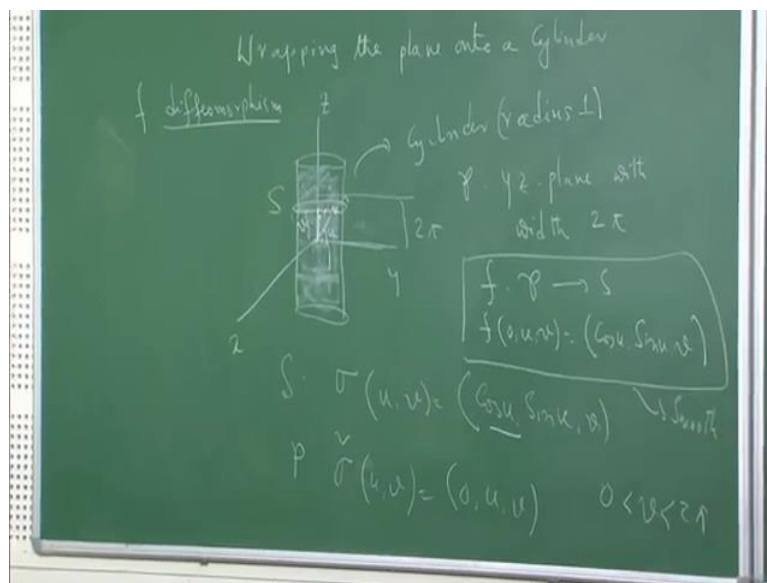 Wrapping the plane onto a Cylinder
f diffeomorphism
z
Cylinder (radius 1)
S
2π
y
x
P · yz-plane with
width 2π
f · P → S
f(0,u,v) = (Cosu, Sinu, v)
Smooth
S · σ(u,v) = (Cosu, Sinu, v)
P σ̌(u,v) = (0,u,v) 0<v<2π